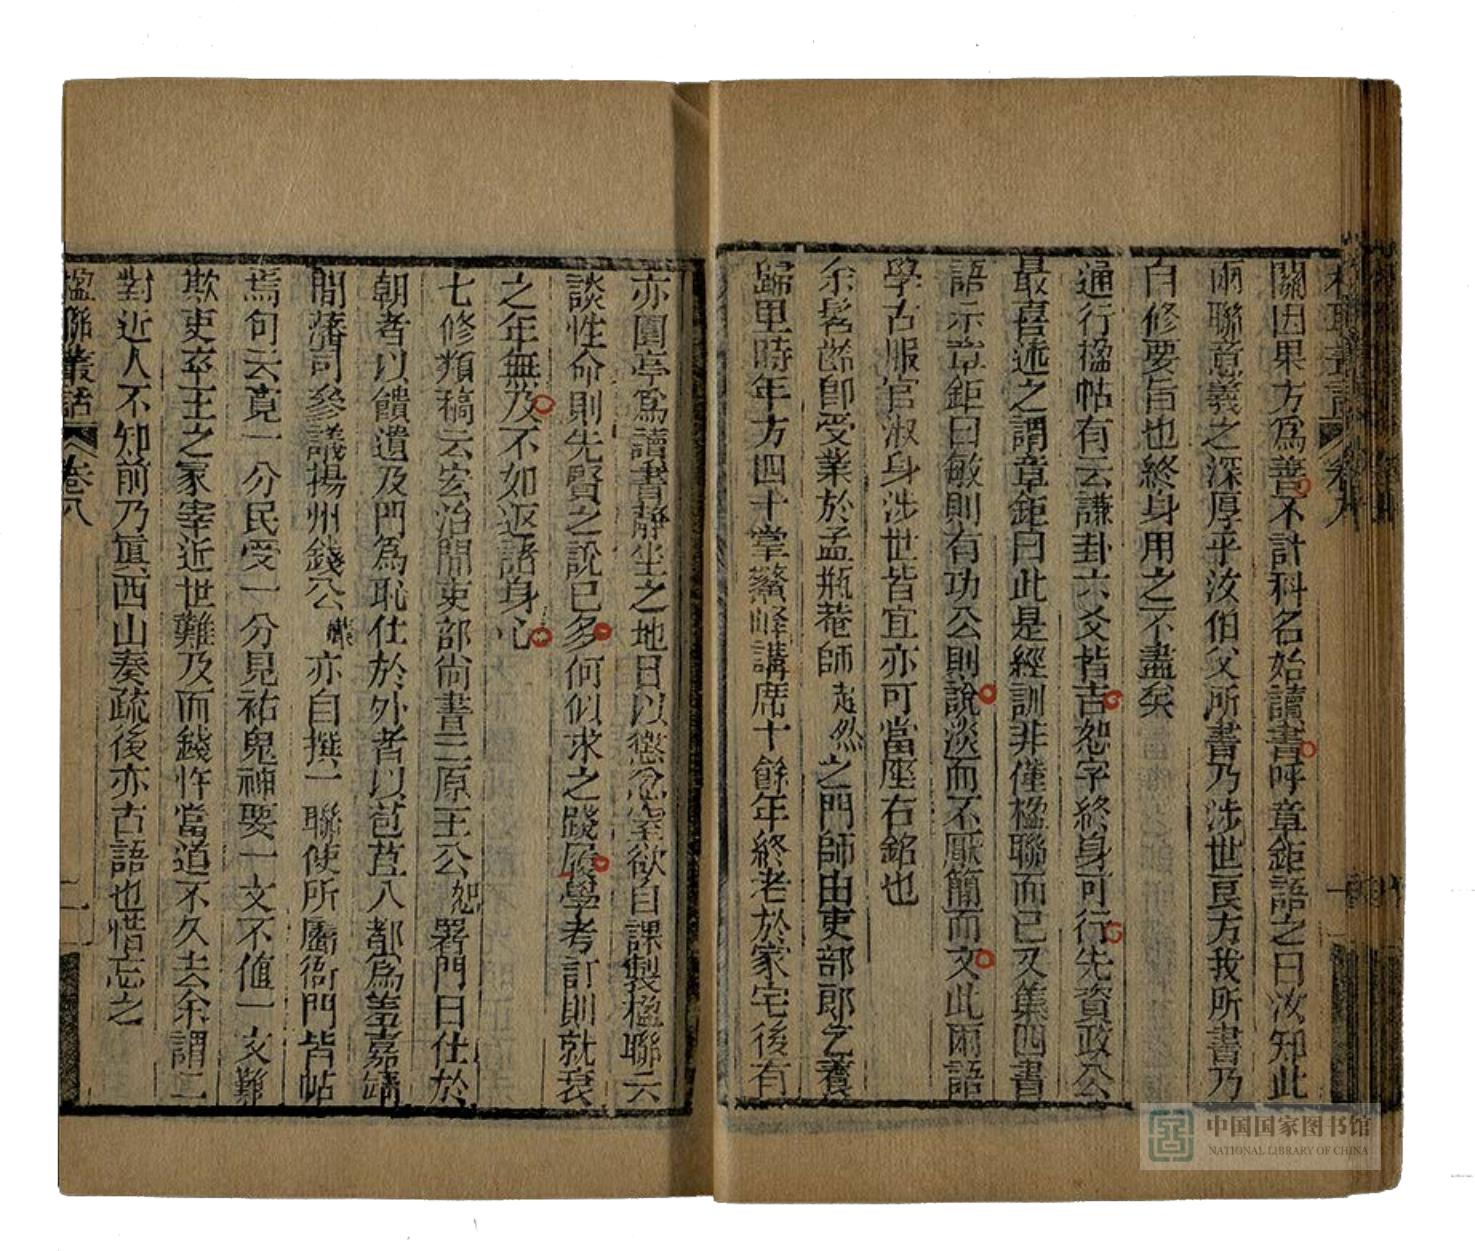 楹聯叢話 卷八
關因果方為善不計科名始讀書呼章鉅語之曰汝知此
兩聯意義之深厚乎汝伯父所書乃涉世良方我所書乃
自修要旨也終身用之不盡矣
通行楹帖有云謙卦六爻皆吉恕字終身可行先資政公
最喜述之謂章鉅曰此是經訓非僅楹聯而已又集四書
語示章鉅曰敏則有功公則說淡而不厭簡而文此兩語
學古服官淑身涉世皆宜亦可當座右銘也
余髫齡即受業於孟瓶菴師超然之門師由吏部郎乞養
歸里時年方四十掌鰲峰講席十餘年終老於家宅後有
亦園亭為讀書靜坐之地日以懲忿窒欲自課製楹聯云
談性命則先賢之說已多何似求之踐履學考訂則就衰
之年無及不如返諸身心
七修類稿云宏治間吏部尙書三原王公恕署門曰仕於
朝者以饋遺及門為恥仕於外者以苞苴入都為羞嘉靖
間藩司參議揚州錢公㠛亦自撰一聯使所屬衙門皆帖
焉句云寬一分民受一分見祐鬼神要一文不值一文難
欺吏卒王之冢宰近世難及而錢忤當道不久去余謂二
對近人不知前乃眞西山奏疏後亦古語也惜忘之
楹聯叢話 卷八 二